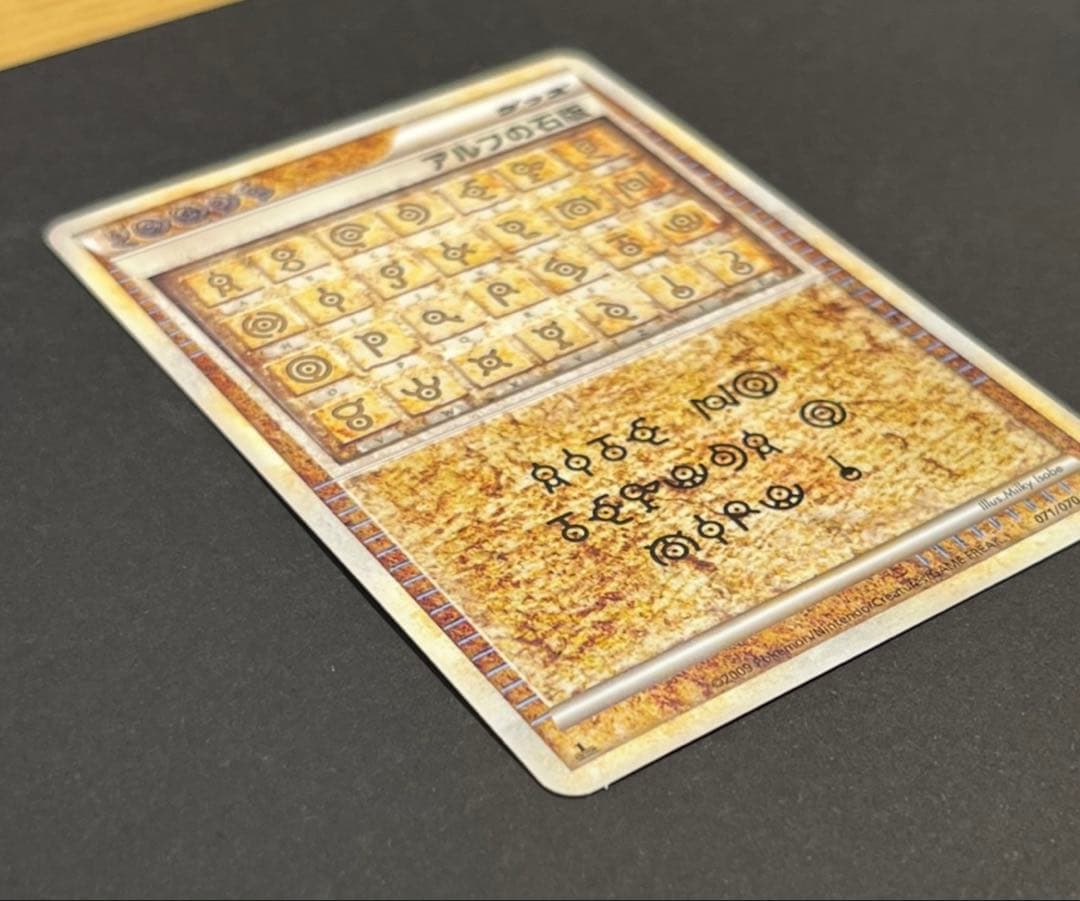 グッズ
アルフの石版
A B C D E F G
H I J K L M N
O P Q R S T U
V W X Y Z ! ?
AITE NO
TEFUDA O
MIRU !
Illus. Milky Isobe
071/070
©2009 Pokémon/Nintendo/Creatures/GAME FREAK.
L